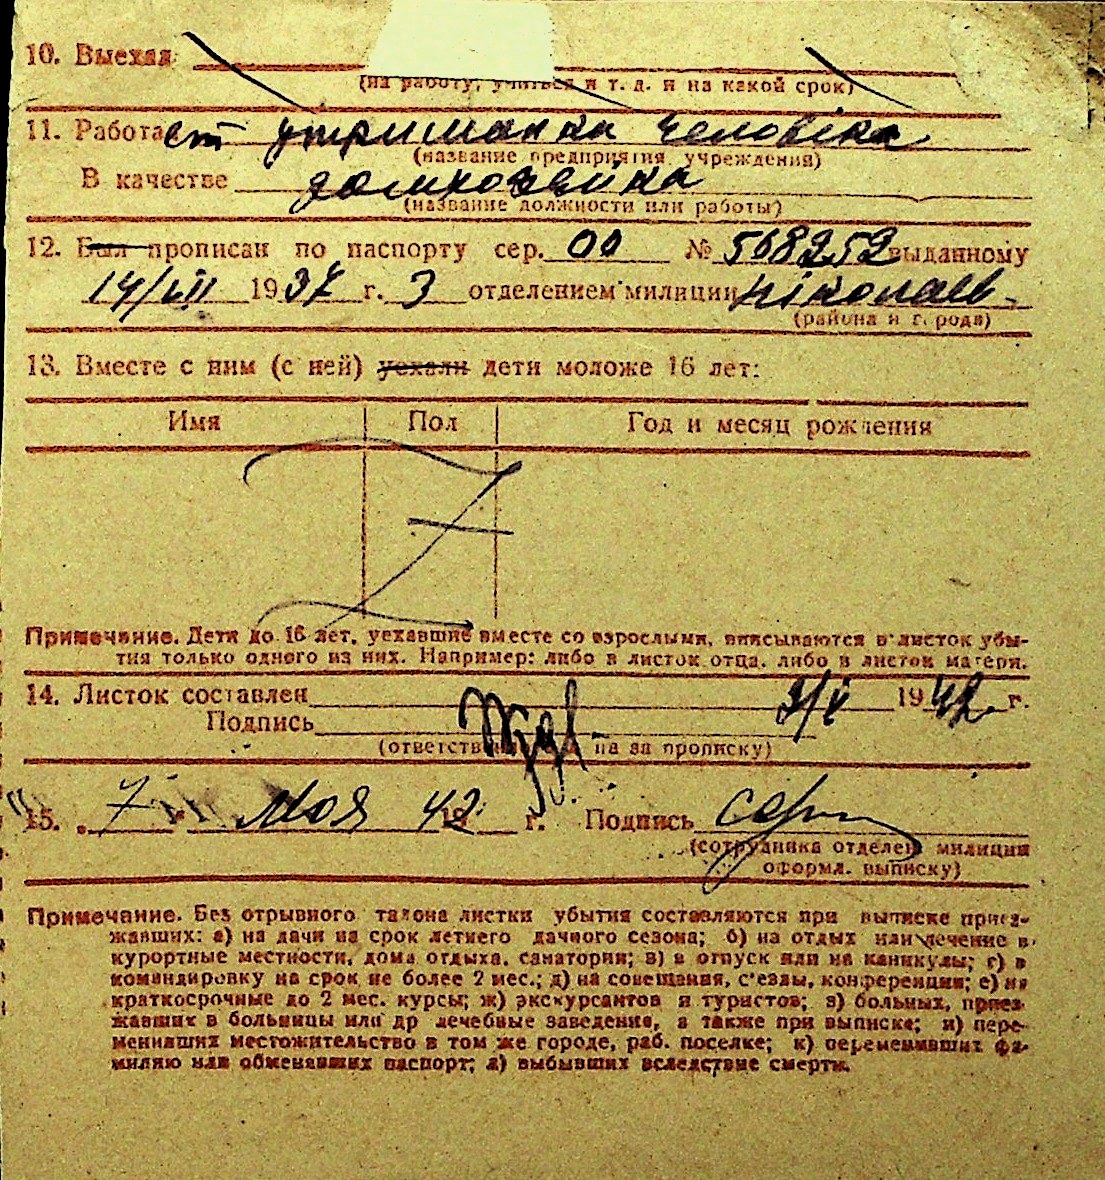 10. Выехал
(на работу, учиться и т. д. и на какой срок)
11. Работает утриманка человіка
(название предприятия, учреждения)
В качестве домхозяйка
(название должности или работы)
12. Был прописан по паспорту сер. 00 № 568252 выданному
14/VII 1937 г. 3 отделением милиции Ніколаев.
(района и города)
13. Вместе с ним (с ней) уехали дети моложе 16 лет:
Имя Пол Год и месяц рождения
Примечание. Дети до 16 лет, уехавшие вместе со взрослыми, вписываются в листок убы-
тия только одного из них. Например: либо в листок отца, либо в листок матери.
14. Листок составлен 1942 г.
Подпись
(ответственного лица за прописку)
15. „7" Мая 42 г. Подпись
(сотрудника отделен. милиции
оформл. выписку)
Примечание. Без отрывного талона листки убытия составляются при выписке приез-
жавших: а) на дачи на срок летнего дачного сезона; б) на отдых или лечение в
курортные местности, дома отдыха, санатории; в) в отпуск или на каникулы; г) в
командировку на срок не более 2 мес.; д) на совещания, с'езды, конференции; е) на
краткосрочные до 2 мес. курсы; ж) экскурсантов и туристов; з) больных, приез-
жавших в больницы или др лечебные заведения, а также при выписке; и) пере-
менивших местожительство в том же городе, раб. поселке; к) переменивших фа-
милию или обменявших паспорт; л) выбывших вследствие смерти.